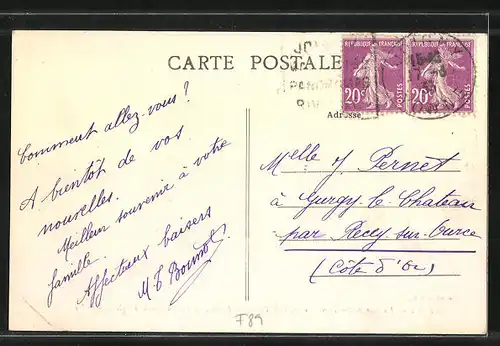 CARTE POSTALE
REPUBLIQUE FRANÇAISE
20c
POSTES
REPUBLIQUE FRANÇAISE
20c
POSTES
Adresse
Comment allez-vous ?
A bientôt de vos
nouvelles.
Meilleur souvenir à votre
famille.
Affectueux baisers
Melle J. Pernet
à Gurgy le Chateau
par Recey sur Ource
(Côte d'Or)
F89